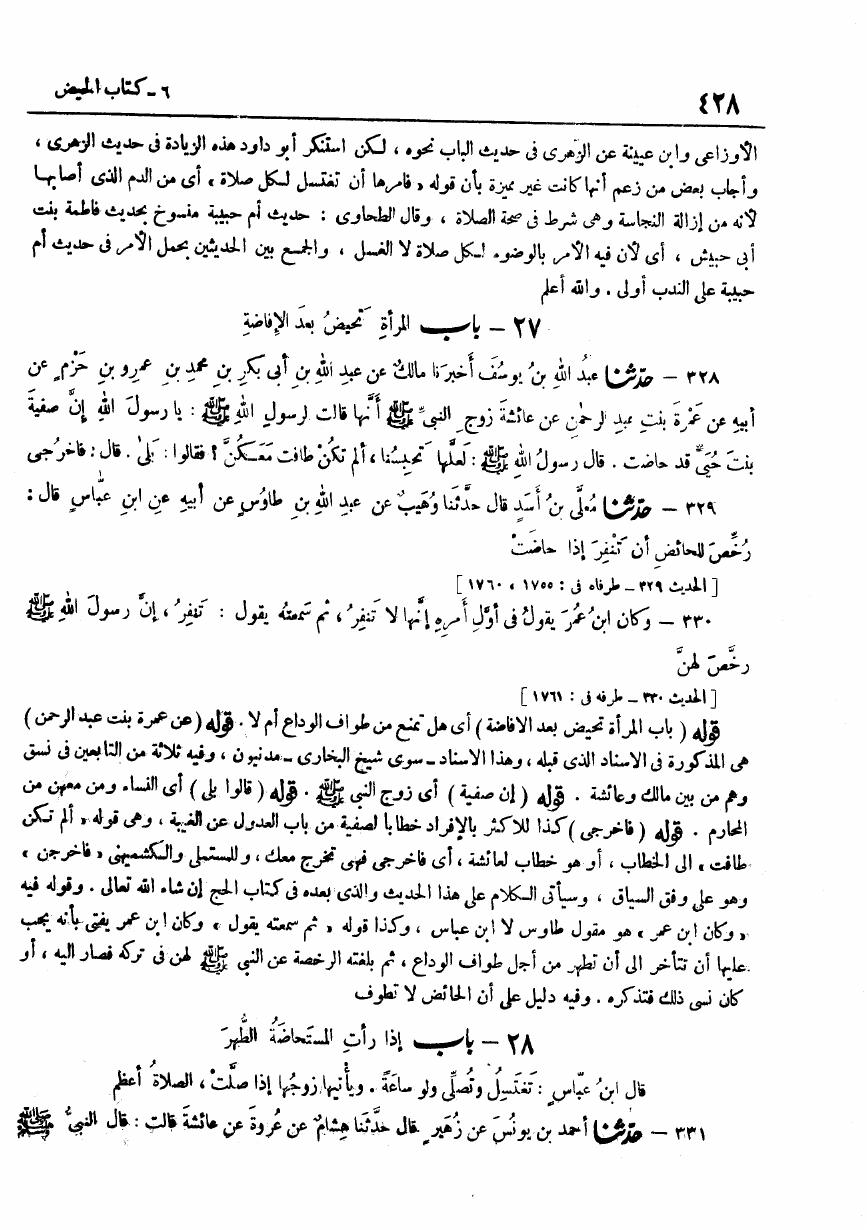 ٤٢٨
٦ - كتاب الحيض
الأوزاعى وابن عيينة عن الزهرى فى حديث الباب نحوه ، لكن استنكر أبو داود هذه الزيادة فى حديث الزهرى ،
وأجاب بعض من زعم أنها كانت غير مميزة بأن قوله « فأمرها أن تغتسل لكل صلاة » أى من الدم الذى أصابها
لأنه من إزالة النجاسة وهى شرط فى صحة الصلاة ، وقال الطحاوى : حديث أم حبيبة منسوخ بحديث فاطمة بنت
أبى حبيش ، أى لأن فيه الأمر بالوضوء لكل صلاة لا الغسل ، والجمع بين الحديثين بحمل الأمر فى حديث أم
حبيبة على الندب أولى . والله أعلم
٢٧ - باب المرأةِ تَحيضُ بعدَ الإفاضةِ
٣٢٨ - حدّثنا عبدُ اللهِ بنُ يوسُفَ أخبرَنا مالكٌ عن عبدِ اللهِ بنِ أبى بكرِ بنِ محمدِ بنِ عمرِو بنِ حَزْمٍ عن
أبيهِ عن عَمْرةَ بنتِ عبدِ الرحمٰنِ عن عائشةَ زوجِ النبىِّ ﷺ أنَّها قالت لرسولِ اللهِ ﷺ : يا رسولَ اللهِ إنَّ صفيةَ
بنتَ حُيَىٍّ قد حاضت . قال رسولُ اللهِ ﷺ : لَعلَّها تَحبِسُنا ، ألم تكُنْ طافت مَعَـكنَّ ؟ فقالوا : بَلىٰ . قال : فاخرُجى
٣٢٩ - حدّثنا مُعلَّى بنُ أَسَدٍ قال حدَّثَنا وُهَيبٌ عن عبدِ اللهِ بنِ طاوُسٍ عن أبيهِ عنِ ابنِ عبّاسٍ قال :
رُخِّصَ للحائضِ أن تَنْفِرَ إذا حاضَتْ
[ الحديث ٣٢٩ - طرفاه فى : ١٧٥٥ ، ١٧٦٠ ]
٣٣٠ - وكان ابنُ عُمَرَ يقولُ فى أوَّلِ أمرِهِ إنَّها لا تَنفِرُ ، ثم سَمعتُه يقول : تَنفِرُ ، إنَّ رسولَ اللهِ ﷺ
رخَّصَ لهنَّ
[ الحديث ٣٣٠ - طرفه فى : ١٧٦١ ]
قوله ( باب المرأة تحيض بعد الافاضة ) أى هل تمنع من طواف الوداع أم لا . قوله ( عن عمرة بنت عبد الرحمن )
هى المذكورة فى الاسناد الذى قبله ، وهذا الاسناد - سوى شيخ البخارى - مدنيون ، وفيه ثلاثة من التابعين فى نسق
وهم من بين مالك وعائشة . قوله ( إن صفية ) أى زوج النبى ﷺ . قوله ( قالوا بلى ) أى النساء ومن معهن من
المحارم . قوله ( فاخرجى ) كذا للاكثر بالإفراد خطابا لصفية من باب العدول عن الغيبة ، وهى قوله « ألم تكن
طافت » الى الخطاب ، أو هو خطاب لعائشة ، أى فاخرجى فهى تخرج معك ، وللمستملى والكشميهنى « فاخرجن »
وهو على وفق السياق ، وسيأتى الـكلام على هذا الحديث والذى بعده فى كتاب الحج إن شاء الله تعالى . وقوله فيه
« وكان ابن عمر » هو مقول طاوس لا ابن عباس ، وكذا قوله « ثم سمعته يقول » وكان ابن عمر يفتى بأنه يجب
عليها أن تتأخر الى أن تطهر من أجل طواف الوداع ، ثم بلغته الرخصة عن النبى ﷺ لهن فى تركه فصار اليه ، أو
كان نسى ذلك فتذكره . وفيه دليل على أن الحائض لا تطوف
٢٨ - باب إذا رأتِ المستَحاضةُ الطُّهرَ
قال ابنُ عبّاسٍ : تَغتَسِلُ وتُصلِّى ولو ساعَةً . ويأْتيها زوجُها إذا صلَّتْ ، الصلاةُ أعظَم
٣٣١ - حدّثنا أحمد بن يونُسَ عن زُهَيرٍ قال حدَّثَنا هِشامٌ عن عُروةَ عن عائشةَ قالت : قال النبىُّ ﷺ